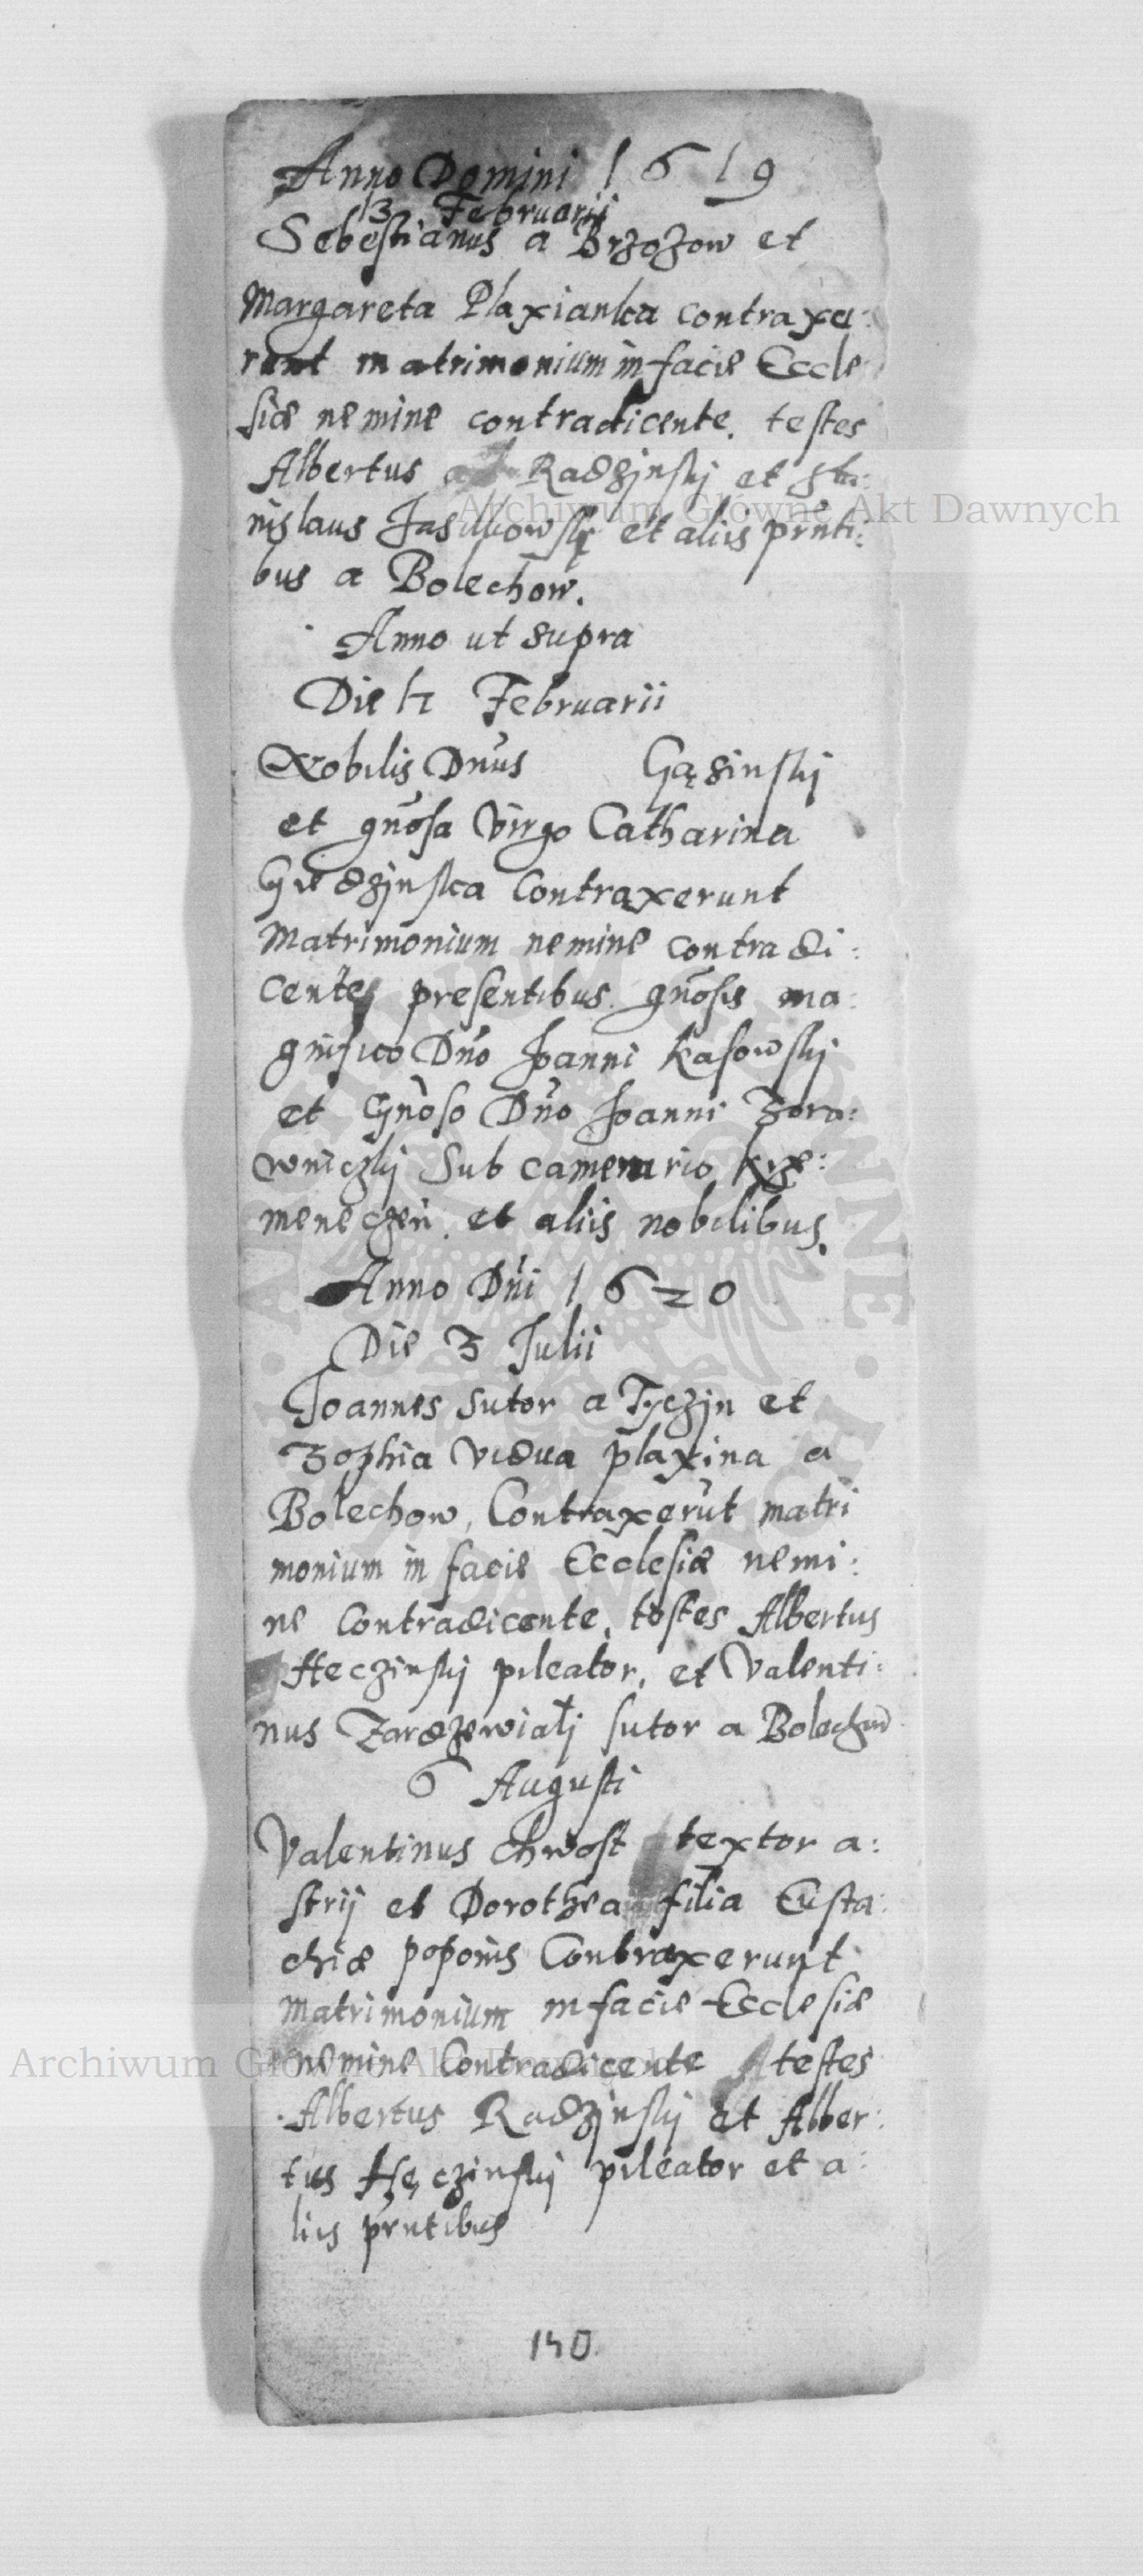 Anno Domini 1619
13 Februarii
Sebestianus a Brzozow et
Margareta Plaxianka contraxe:
runt matrimonium in facie Eccle
siæ nemine contradicente. testes
Albertus Radzinskj et Sta:
nislaus et aliis pr̃nti:
bus a Bolechow.
Anno ut supra
Die 17 Februarii
Nobilis Dn̄us Gąsinskj
et gn̄osa Virgo Catharina
contraxerunt
Matrimonium nemine contradi:
centes presentibus gn̄osis ma:
gnifico Dn̄o Joanni Kasowskj
et Gn̄oso Dn̄o Joanni Zora:
wniczkj Sub camerario krze:
meneczen̄. et aliis nobilibus.
Anno Dn̄i 1620
Die 3 Julii
Joannes sutor a Tyczin et
Zophia vidua plaxina a
Bolechow, Contraxerūt matri
monium in facie Ecclesiæ nemi:
ne Contradicente, testes Albertus
Heczinskj pileator, et Valenti:
nus Zardzewiałj sutor a Bolechow
6 Augusti
Valentinus chwost textor a:
strij et Dorothea filia Eusta:
chiæ poponis Contraxerunt
Matrimonium in facie Ecclesiæ
nemine Contradicente testes
Albertus Radzinskj et Alber:
tus Hęczinskj pileator et a:
liis pr̃ntibus
140
Archiwum Główne Akt Dawnych
Archiwum Główne Akt Dawnych